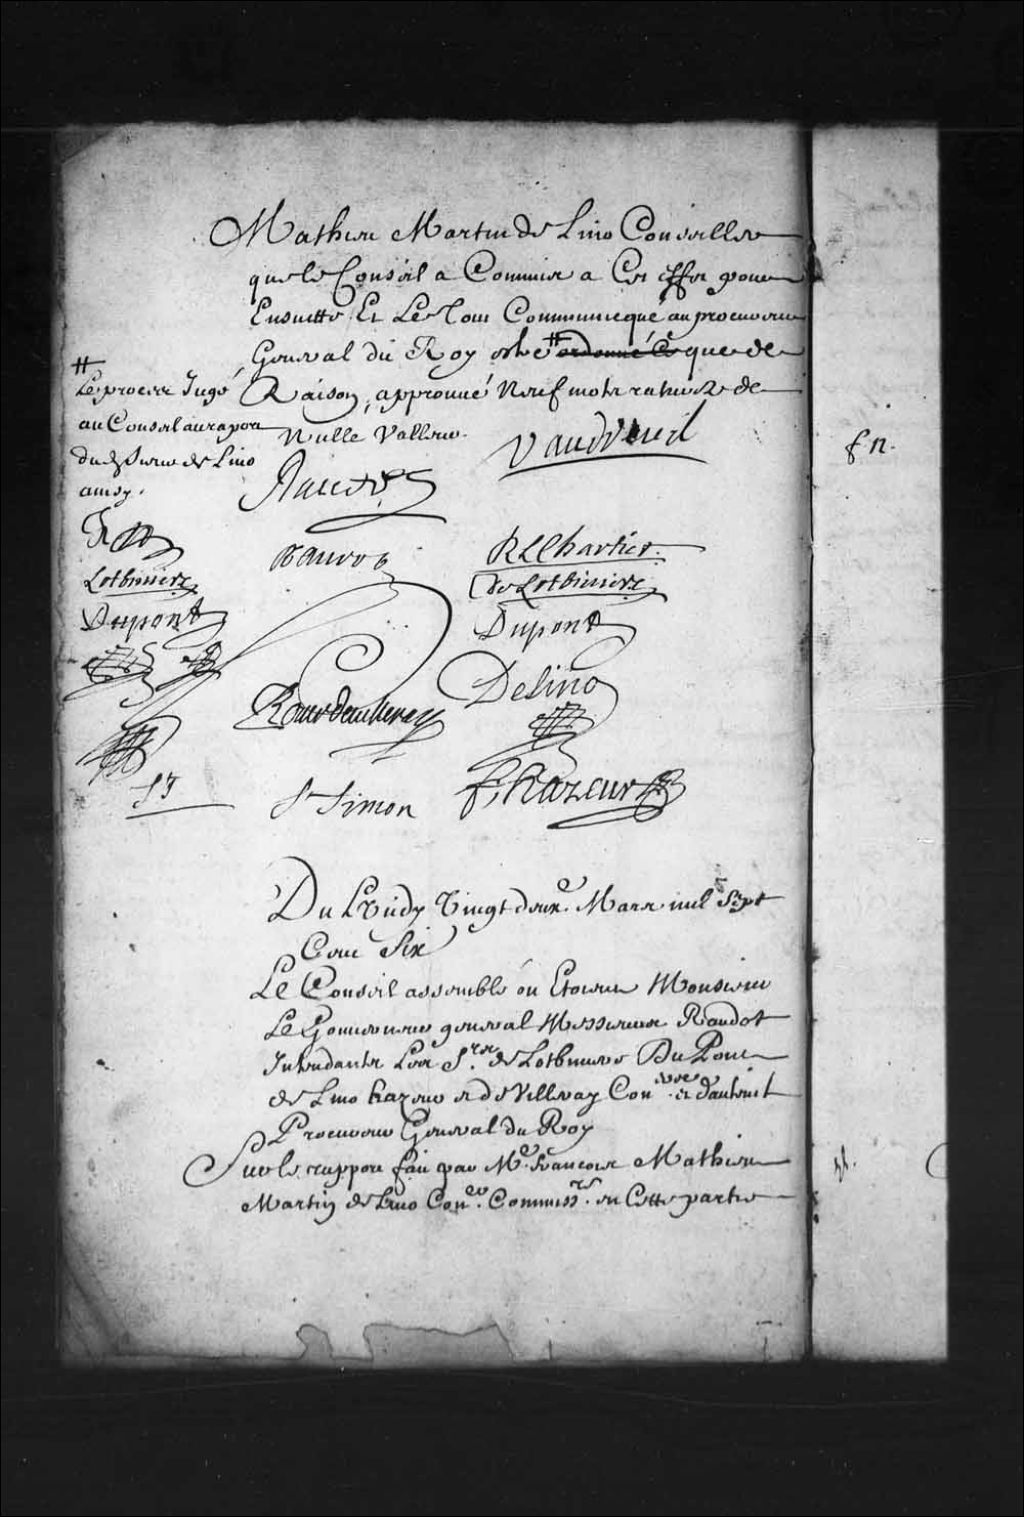 Mathieu Martin de Lino Conseiller
que le Conseil a Commis a Cet effet pour
Ensuitte Et Le Tout Communicqué au procureur
General du Roy estre # ordonné Ce que de
Raison, approuué Neuf mots raturez de
Nulle Valleur.
#
Le procez Jugé
au Conseil au rapor
dud. Sieur de Lino
Vaudreuil
Raudot
Raudot
RLChartier
de Lotbiniere
Lotbiniere
Dupont
Dupont
Delino
St Simon
f hazeur
SS
Du Lundy Vingt deuxe. Mars mil Sept
Cent Six
Le Conseil assemblé ou Etoient Monsieur
Le Gouuerneur general Messieurs Raudot
Intendants Les Srs. de Lotbiniere Du Pont
de Lino hazeur et de Villeray Coners. et dauteuil
Procureur General du Roy
Sur le rapport fait par Me. francois Mathieu
Martin de Lino Coner. Commissre. en Cette partie